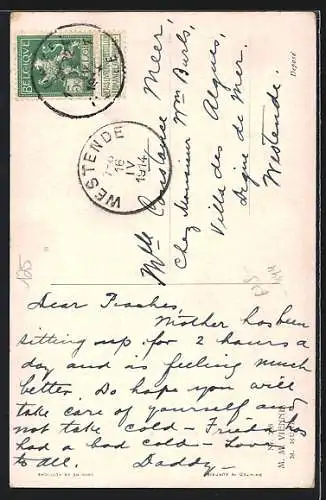 BELGIQUE
WESTENDE
16
IV
1914
Mlle Constance Meer,
Chez Monsieur Wm Burls,
Villa des Algues,
Digue de Mer,
Westende.
Déposé
185
Dear Peaches,
Mother has been
sitting up for 2 hours a
day and is feeling much
better. Do hope you will
take care of yourself and
not take cold – Frieda
had a bad cold – Love
to all. Daddy –
M. M. VIENNE